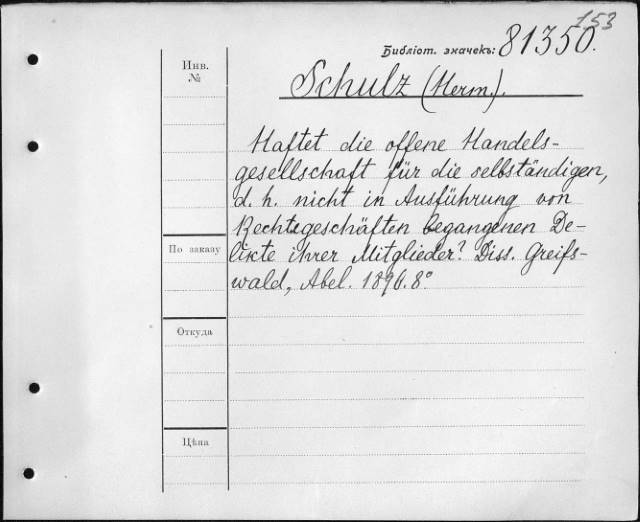 153
Библіот. значекъ: 81350.
Инв.
№
Schulz (Herm.).
Haftet die offene Handels-
gesellschaft für die selbständigen,
d. h. nicht in Ausführung von
Rechtsgeschäften begangenen De-
likte ihrer Mitglieder? Diss. Greifs-
wald, Abel. 1896. 8°.
По заказу
Откуда
Цѣна